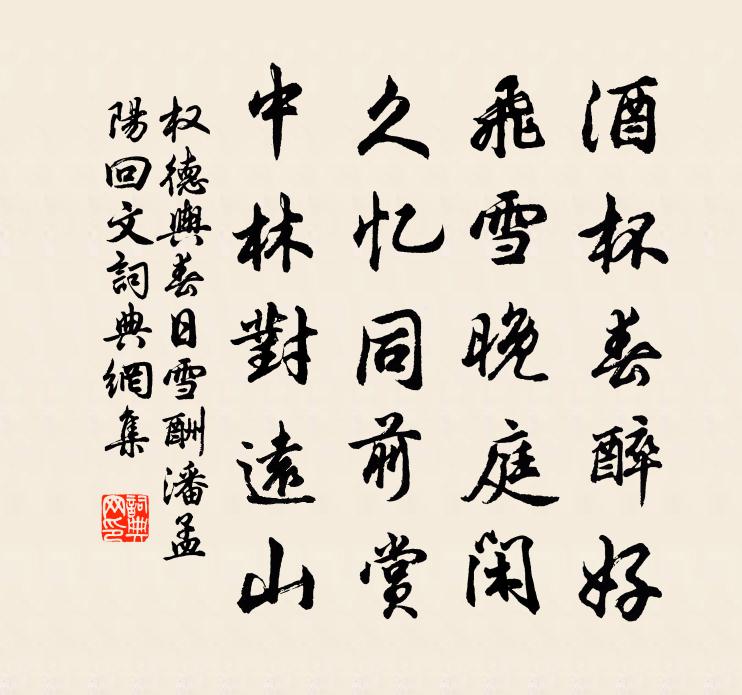 酒杯春醉好
飛雪晚庭閑
久忆同前賞
中林對遠山
权德輿春日雪酬潘孟
陽回文詞典網集
詞典
网印